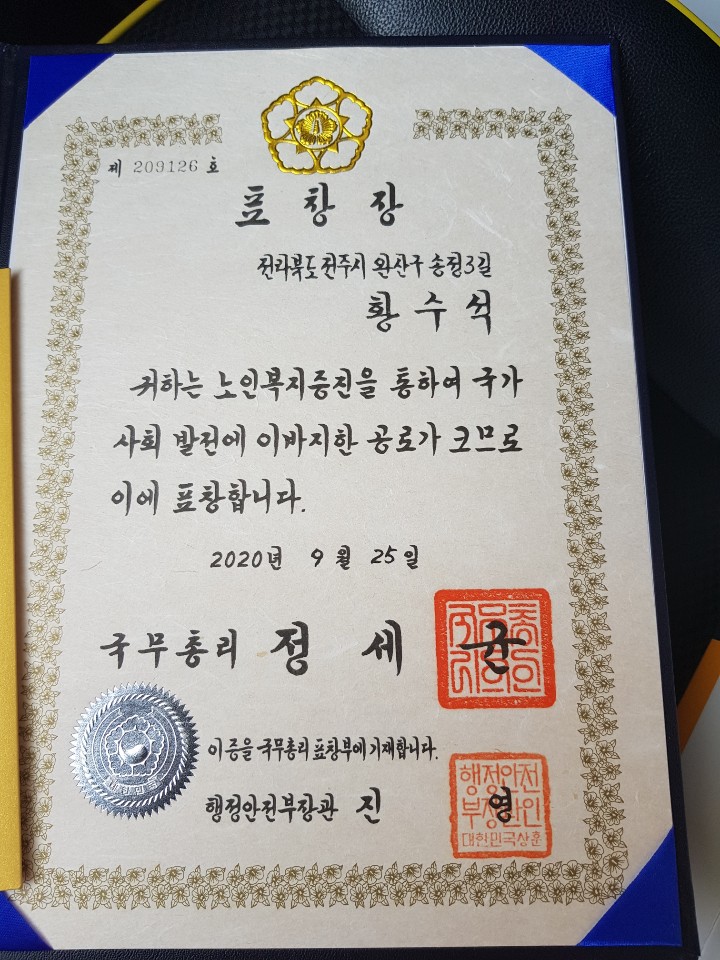 제 209126 호
표 창 장
전라북도 전주시 완산구 송정3길
황 수 석
귀하는 노인복지증진을 통하여 국가
사회 발전에 이바지한 공로가 크므로
이에 표창합니다.
2020년 9월 25일
국무총리 정 세 균
국무총
리의인
이 증을 국무총리 표창부에 기재합니다.
행정안전부장관 진 영
행정안전
부장관인
대한민국상훈